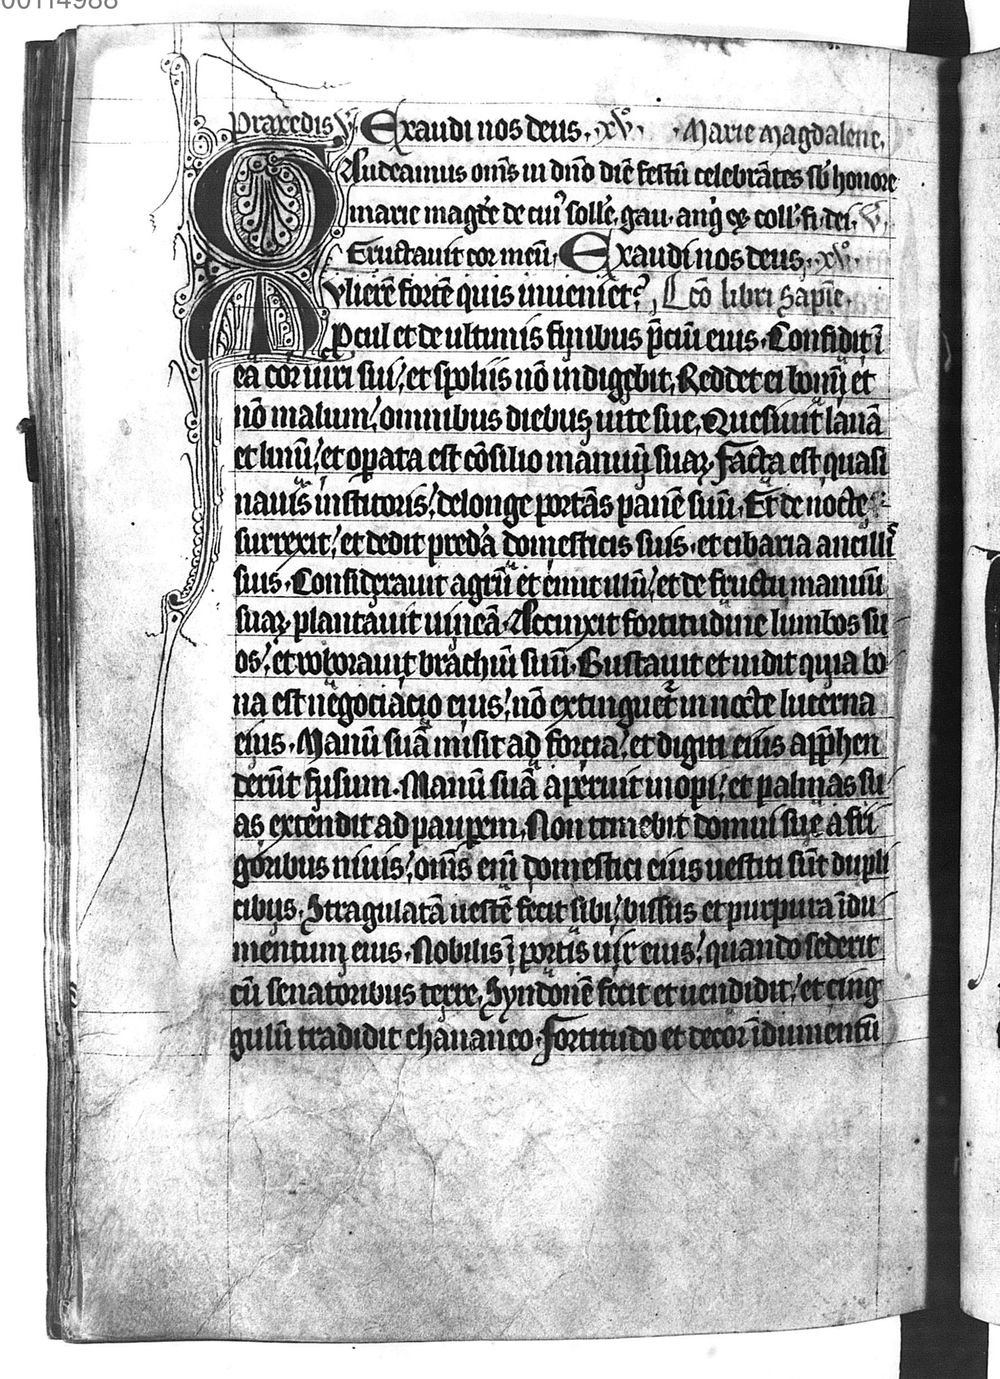 00114988
Praxedis V Exaudi nos deus. xvº. Marie Magdalene.
Gaudeamus om̄s in dn̄o diē festū celebrātes sb̄ honore
marie magd̄e de cui᷒ soll̄e. gau. anḡ
Eructauit cor meū. Exaudi nos deus. xvº.
Mulierē fortē quis inueniet? Lc̄o libri Sapīe.
Procul et de ultimis finibus p̄ciū eius. Confidit ī
eā cor uiri sui, et spoliis nō indigebit. Reddet ei bonū et
nō malum, omnibus diebus uite sue. Quesiuit lanā
et linū, et oꝑata est cōsilio manuū suaꝝ. Facta est quasi
nauis institoris, delonge portās panē suū. Et de nocte
surrexit, et dedit predā domesticis suis. et cibaria ancillis
suis. Considerauit agrū et emit illū, et de fructu manuū
suaꝝ plantauit uineā. Accinxit fortitudine lumbos su
os, et roborauit brachiū suū. Gustauit et uidit quia bo
na est negociacio eius, nō extinguet᷑ in nocte lucerna
eius. Manū suā misit ad forcia, et digiti eius app̄hen
derūt fusum. Manū suā aperuit inopi, et palmas su
as extendit ad pauꝑem. Non timebit domui sue a fri
goribus niuis, om̄s eni᷒ domestici eius uestiti sūt dupli
cibus. Stragulatā uestē fecit sibi, bissus et purpura īdu
mentum eius. Nobilis ī portis uir eius, quando sederit
cū senatoribus terre. Syndonē fecit et uendidit, et cing
gulū tradidit chananeo. Fortitudo et decor īdumentū